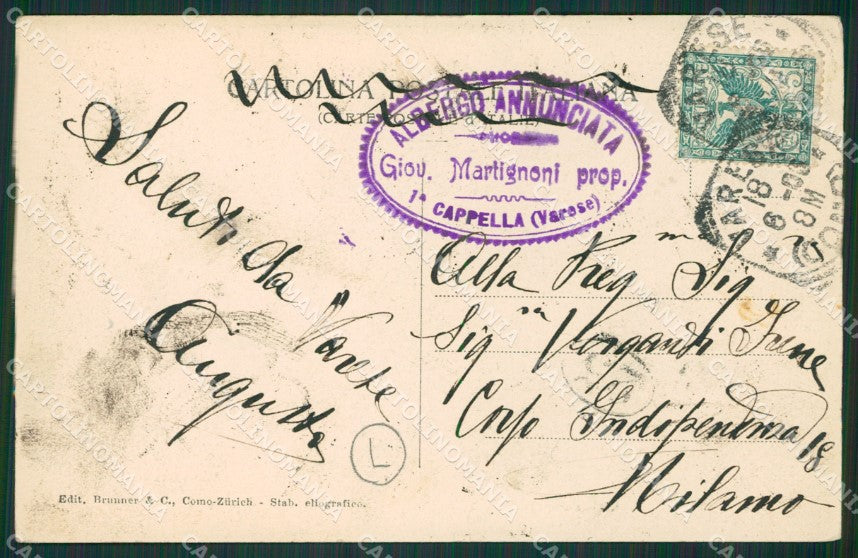 CARTOLINA POSTALE ITALIANA
(CARTE POSTALE d'ITALIE)
ALBERGO ANNUNCIATA
Giov. Martignoni prop.
1ª CAPPELLA (Varese)
VARESE
VARESE
18 6-03
8M
Saluti da Varese
Augusto
Alla Preg ma Sig na
Sig na Vergandi Irene
Corso Indipendenza 18
Milano
L
Edit. Brunner & C., Como-Zürich - Stab. eliografico.
CARTOLINOMANIA